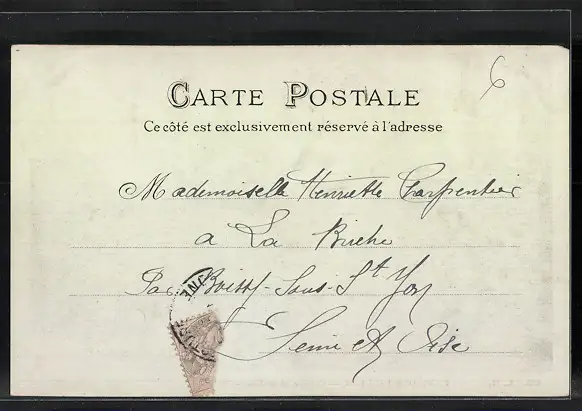 6
CARTE POSTALE
Ce côté est exclusivement réservé à l'adresse
Mademoiselle Henriette Charpentier
a La Briche
Par Boissy-Sous-St Yon
Seine et Oise